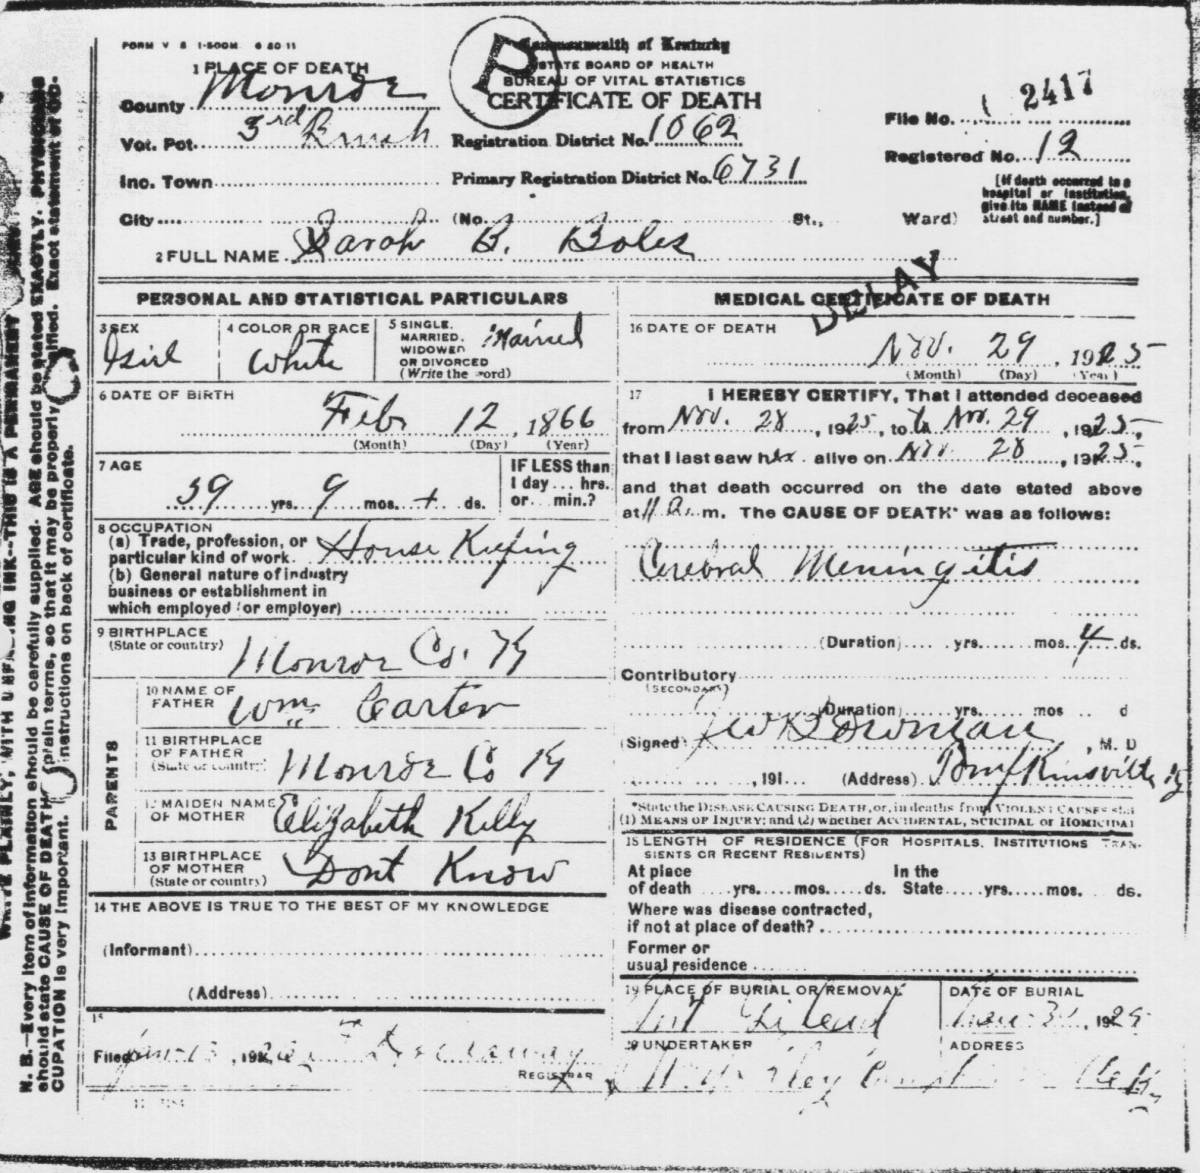 FORM V S 1-500M 6 20 11
Commonwealth of Kentucky
STATE BOARD OF HEALTH
BUREAU OF VITAL STATISTICS
CERTIFICATE OF DEATH
P
1 PLACE OF DEATH
County Monroe
Vot. Pct. 3rd
Inc. Town
City (No. St., Ward)
Registration District No. 1062
Primary Registration District No. 6731
File No. 2417
Registered No. 12
[If death occurred in a
hospital or institution,
give its NAME instead of
street and number.]
2 FULL NAME Sarah B. Boles
DELAY
PERSONAL AND STATISTICAL PARTICULARS
3 SEX
Girl
4 COLOR OR RACE
White
5 SINGLE,
MARRIED,
WIDOWED
OR DIVORCED
(Write the word)
Married
6 DATE OF BIRTH
Feb 12, 1866
(Month) (Day) (Year)
7 AGE
59 yrs. 9 mos. + ds.
IF LESS than
1 day ... hrs.
or ... min.?
8 OCCUPATION
(a) Trade, profession, or
particular kind of work. House Keeping
(b) General nature of industry
business or establishment in
which employed (or employer)
9 BIRTHPLACE
(State or country)
Monroe Co. Ky
PARENTS
10 NAME OF
FATHER
Wm Carter
11 BIRTHPLACE
OF FATHER
(State or country)
Monroe Co Ky
12 MAIDEN NAME
OF MOTHER
Elizabeth Kelly
13 BIRTHPLACE
OF MOTHER
(State or country)
Dont Know
14 THE ABOVE IS TRUE TO THE BEST OF MY KNOWLEDGE
(Informant)
(Address)
15
Filed , 192
REGISTRAR
MEDICAL CERTIFICATE OF DEATH
16 DATE OF DEATH
Nov. 29, 1925
(Month) (Day) (Year)
17 I HEREBY CERTIFY, That I attended deceased
from Nov. 28, 1925, to Nov. 29, 1925,
that I last saw her alive on Nov. 28, 1925,
and that death occurred on the date stated above
at 11 a. m. The CAUSE OF DEATH* was as follows:
Cerebral Meningitis
(Duration) yrs. mos. 4 ds.
Contributory
(SECONDARY)
(Duration) yrs. mos d
(Signed) Bowman, M. D
, 191 (Address) Tompkinsville Ky
*State the DISEASE CAUSING DEATH, or, in deaths from VIOLENT CAUSES
(1) MEANS OF INJURY; and (2) whether ACCIDENTAL, SUICIDAL or HOMICIDAL
18 LENGTH OF RESIDENCE (FOR HOSPITALS, INSTITUTIONS TRAN-
SIENTS OR RECENT RESIDENTS)
At place
of death yrs. mos. ds.
In the
State yrs. mos. ds.
Where was disease contracted,
if not at place of death?
Former or
usual residence
19 PLACE OF BURIAL OR REMOVAL
Mt Gilead
DATE OF BURIAL
Nov 30, 1925
20 UNDERTAKER
ADDRESS
WRITE PLAINLY, WITH UNFADING INK--THIS IS A PERMANENT
N. B.--Every item of information should be carefully supplied. AGE should be stated EXACTLY. PHYSICIANS
should state CAUSE OF DEATH in plain terms, so that it may be properly classified. Exact statement of OC-
CUPATION is very important. instructions on back of certificate.